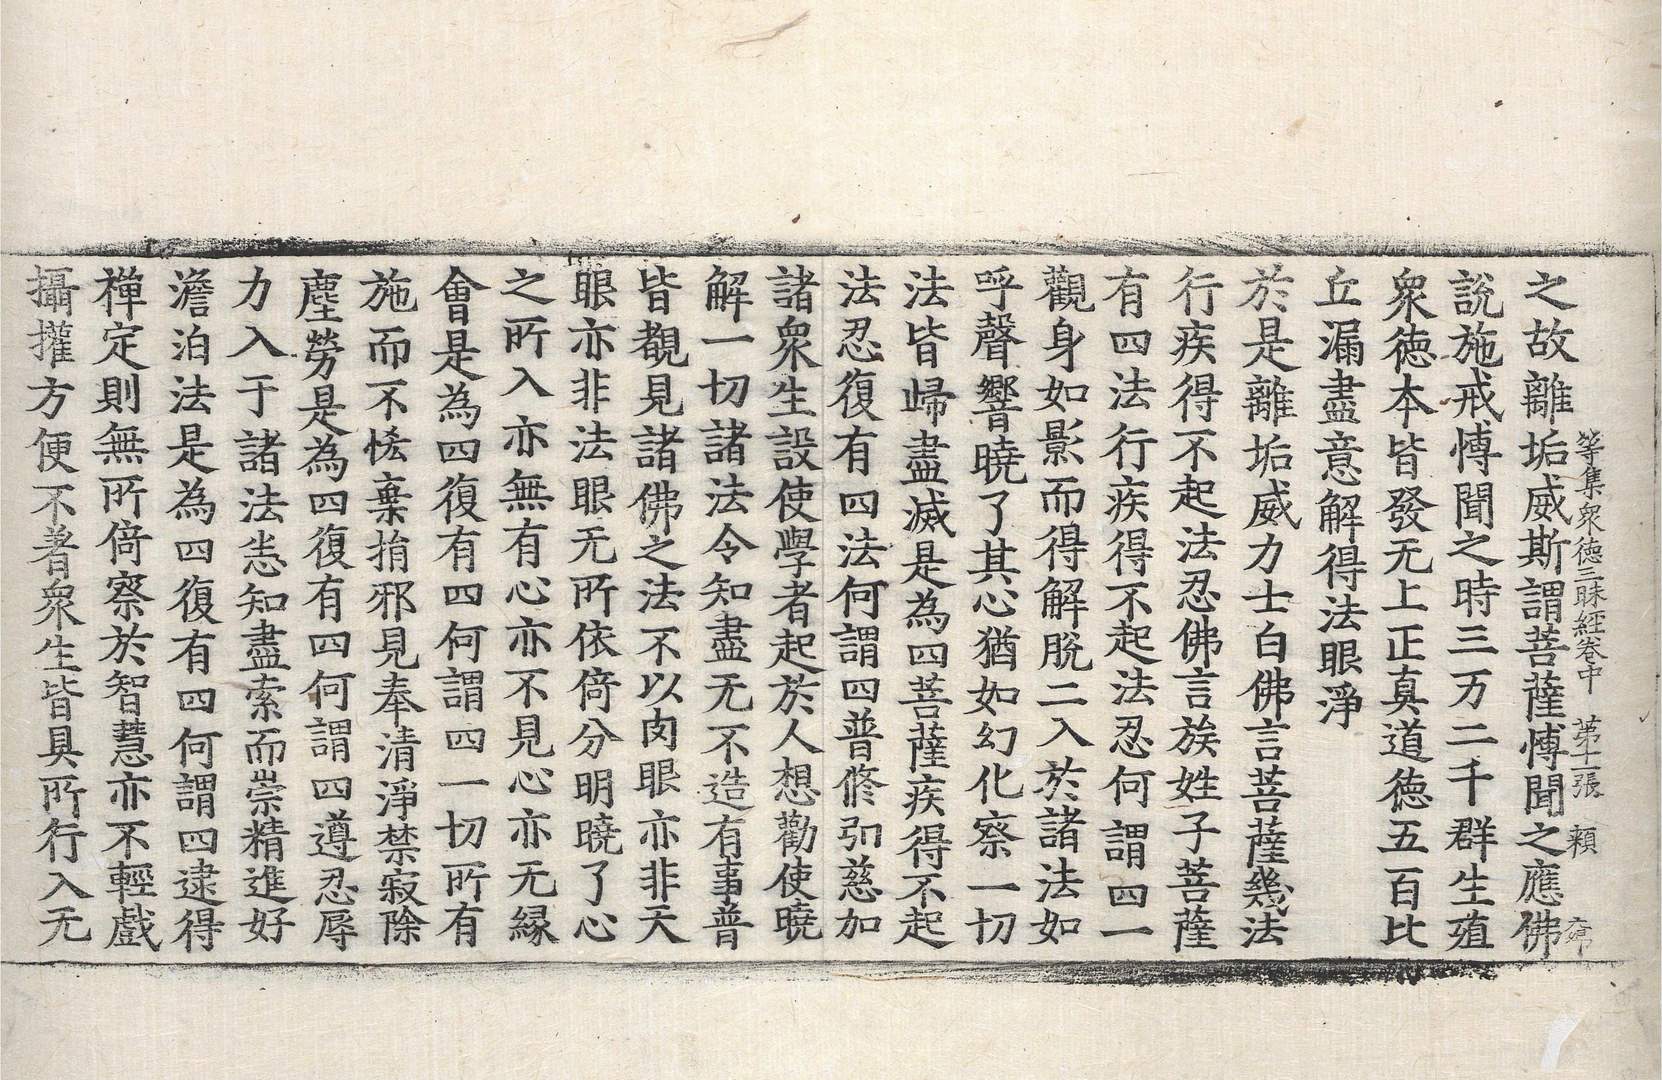 等集衆德三昧經卷中 第十一張 賴
之故離垢威斯謂菩薩愽聞之應佛
說施戒愽聞之時三万二千群生殖
衆德本皆發无上正真道德五百比
丘漏盡意解得法眼淨
於是離垢威力士白佛言菩薩幾法
行疾得不起法忍佛言族姓子菩薩
有四法行疾得不起法忍何謂四一
觀身如影而得解脫二入於諸法如
呼聲響曉了其心猶如幻化察一切
法皆歸盡滅是為四菩薩疾得不起
法忍復有四法何謂四普修弘慈加
諸衆生設使學者起於人想勸使曉
解一切諸法令知盡无不造有事普
皆覩見諸佛之法不以肉眼亦非天
眼亦非法眼无所依倚分明曉了心
之所入亦無有心亦不見心亦无緣
會是為四復有四何謂四一切所有
施而不悋棄捐邪見奉清淨禁寂除
塵勞是為四復有四何謂四遵忍辱
力入于諸法悉知盡索而崇精進好
澹泊法是為四復有四何謂四逮得
禪定則無所倚察於智慧亦不輕戲
攝權方便不著衆生皆具所行入无